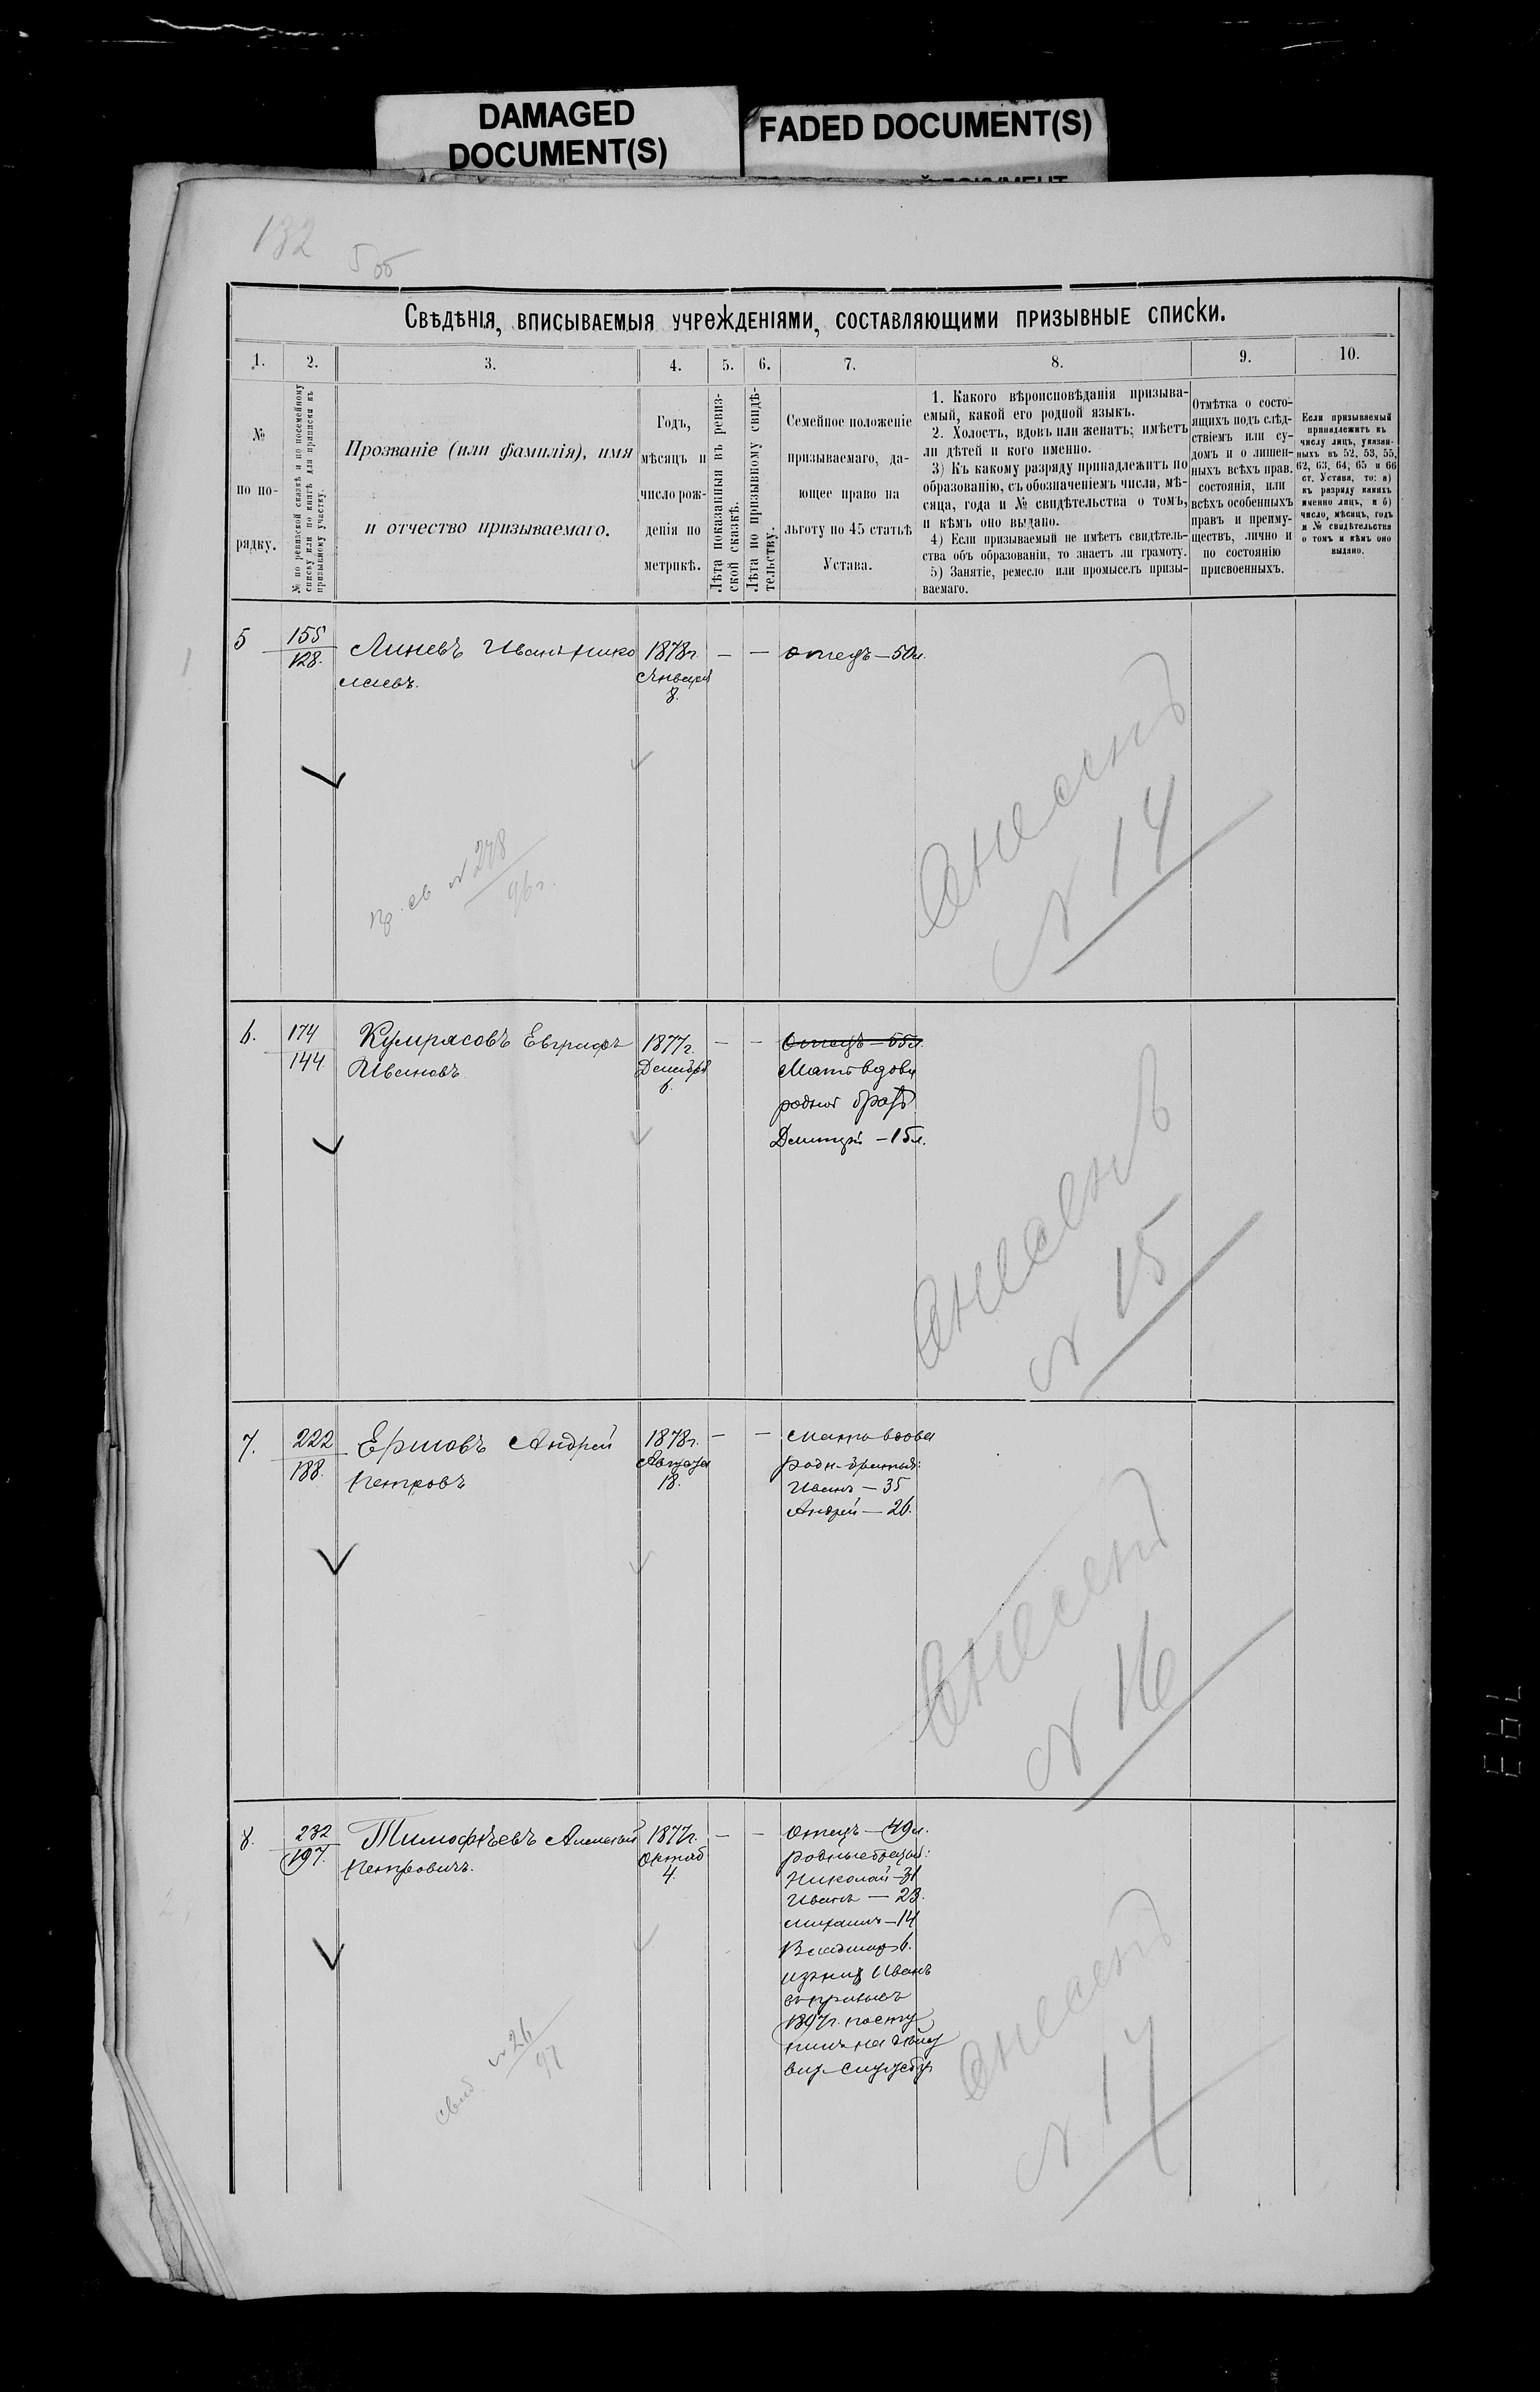 DAMAGED
DOCUMENT(S)
FADED DOCUMENT(S)
132
Свѣдѣнія, вписываемыя учрежденіями, составляющими призывные списки.
1.
2.
3.
4.
5.
6.
7.
8.
9.
10.
№
по по-
рядку.
№ по ревизской сказкѣ и по посемейному
списку или по книгѣ для приписки къ
призывному участку.
Прозваніе (или фамилія), имя
и отчество призываемаго.
Годъ,
мѣсяцъ и
число рож-
денія по
метрикѣ.
Лѣта показанныя въ ревиз-
ской сказкѣ.
Лѣта по призывному свидѣ-
тельству.
Семейное положеніе
призываемаго, да-
ющее право на
льготу по 45 статьѣ
Устава.
1. Какого вѣроисповѣданія призыва-
емый, какой его родной языкъ.
2. Холостъ, вдовъ или женатъ; имѣетъ
ли дѣтей и кого именно.
3) Къ какому разряду принадлежитъ по
образованію, съ обозначеніемъ числа, мѣ-
сяца, года и № свидѣтельства о томъ,
и кѣмъ оно выдано.
4) Если призываемый не имѣетъ свидѣтель-
ства объ образованіи, то знаетъ ли грамоту.
5) Занятіе, ремесло или промыселъ призы-
ваемаго.
Отмѣтка о состо-
ящихъ подъ слѣд-
ствіемъ или су-
домъ и о лишен-
ныхъ всѣхъ прав.
состоянія, или
всѣхъ особенныхъ
правъ и преиму-
ществъ, лично и
по состоянію
присвоенныхъ.
Если призываемый
принадлежитъ къ
числу лицъ, указан-
ныхъ въ 52, 53, 55,
62, 63, 64, 65 и 66
ст. Устава, то: а)
къ разряду какихъ
именно лицъ, и б)
число, мѣсяцъ, годъ
и № свидѣтельства
о томъ и кѣмъ оно
выдано.
5
155
128.
Линевъ Иванъ Нико
лаевъ.
1878г.
Января
8.
— —
отецъ — 50л.
пр. св № 278
96г.
Внесенъ
№ 14
6.
174
144.
Кумрясовъ Евграфъ
Ивановъ
1877г.
Декабря
6.
— —
Отецъ — 55л.
Мать вдова
родной братъ
Дмитрій — 15л.
Внесенъ
№ 15
7.
222
188.
Ершовъ Андрей
Петровъ
1878г.
Августа
18.
— —
Мать вдова
родн. братья:
Иванъ — 35
Андрей — 26.
Внесенъ
№ 16
8.
232
197.
Тимофѣевъ Алексѣй
Петровичъ.
1877г.
Октяб
4.
— —
Отецъ — 49л.
родные братья:
Николай — 31
Иванъ — 23.
Михаилъ — 14
Владимръ 6.
изъ нихъ Иванъ
въ призывъ
1897г. посту
пилъ на дѣйст
вит. службу
свид. № 26
97
Внесенъ
№ 17